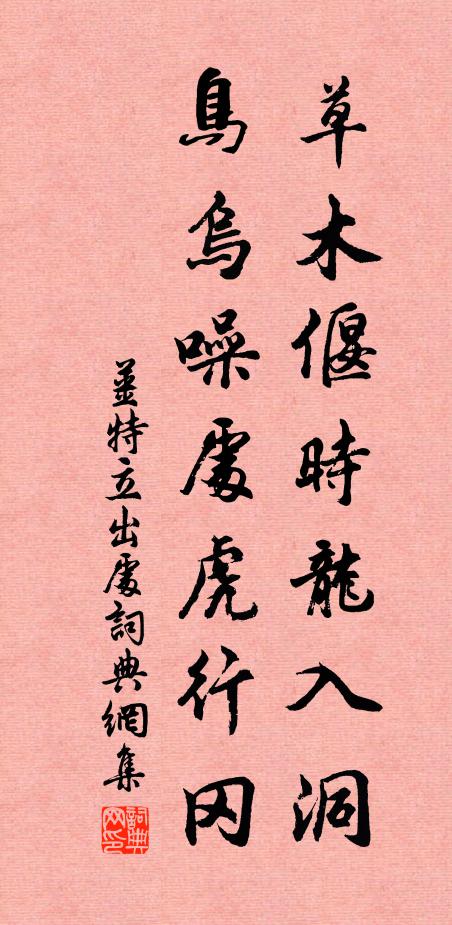 草木偃時龍入洞
鳥烏噪處虎行冈
薑特立出處詞典網集
詞典网印